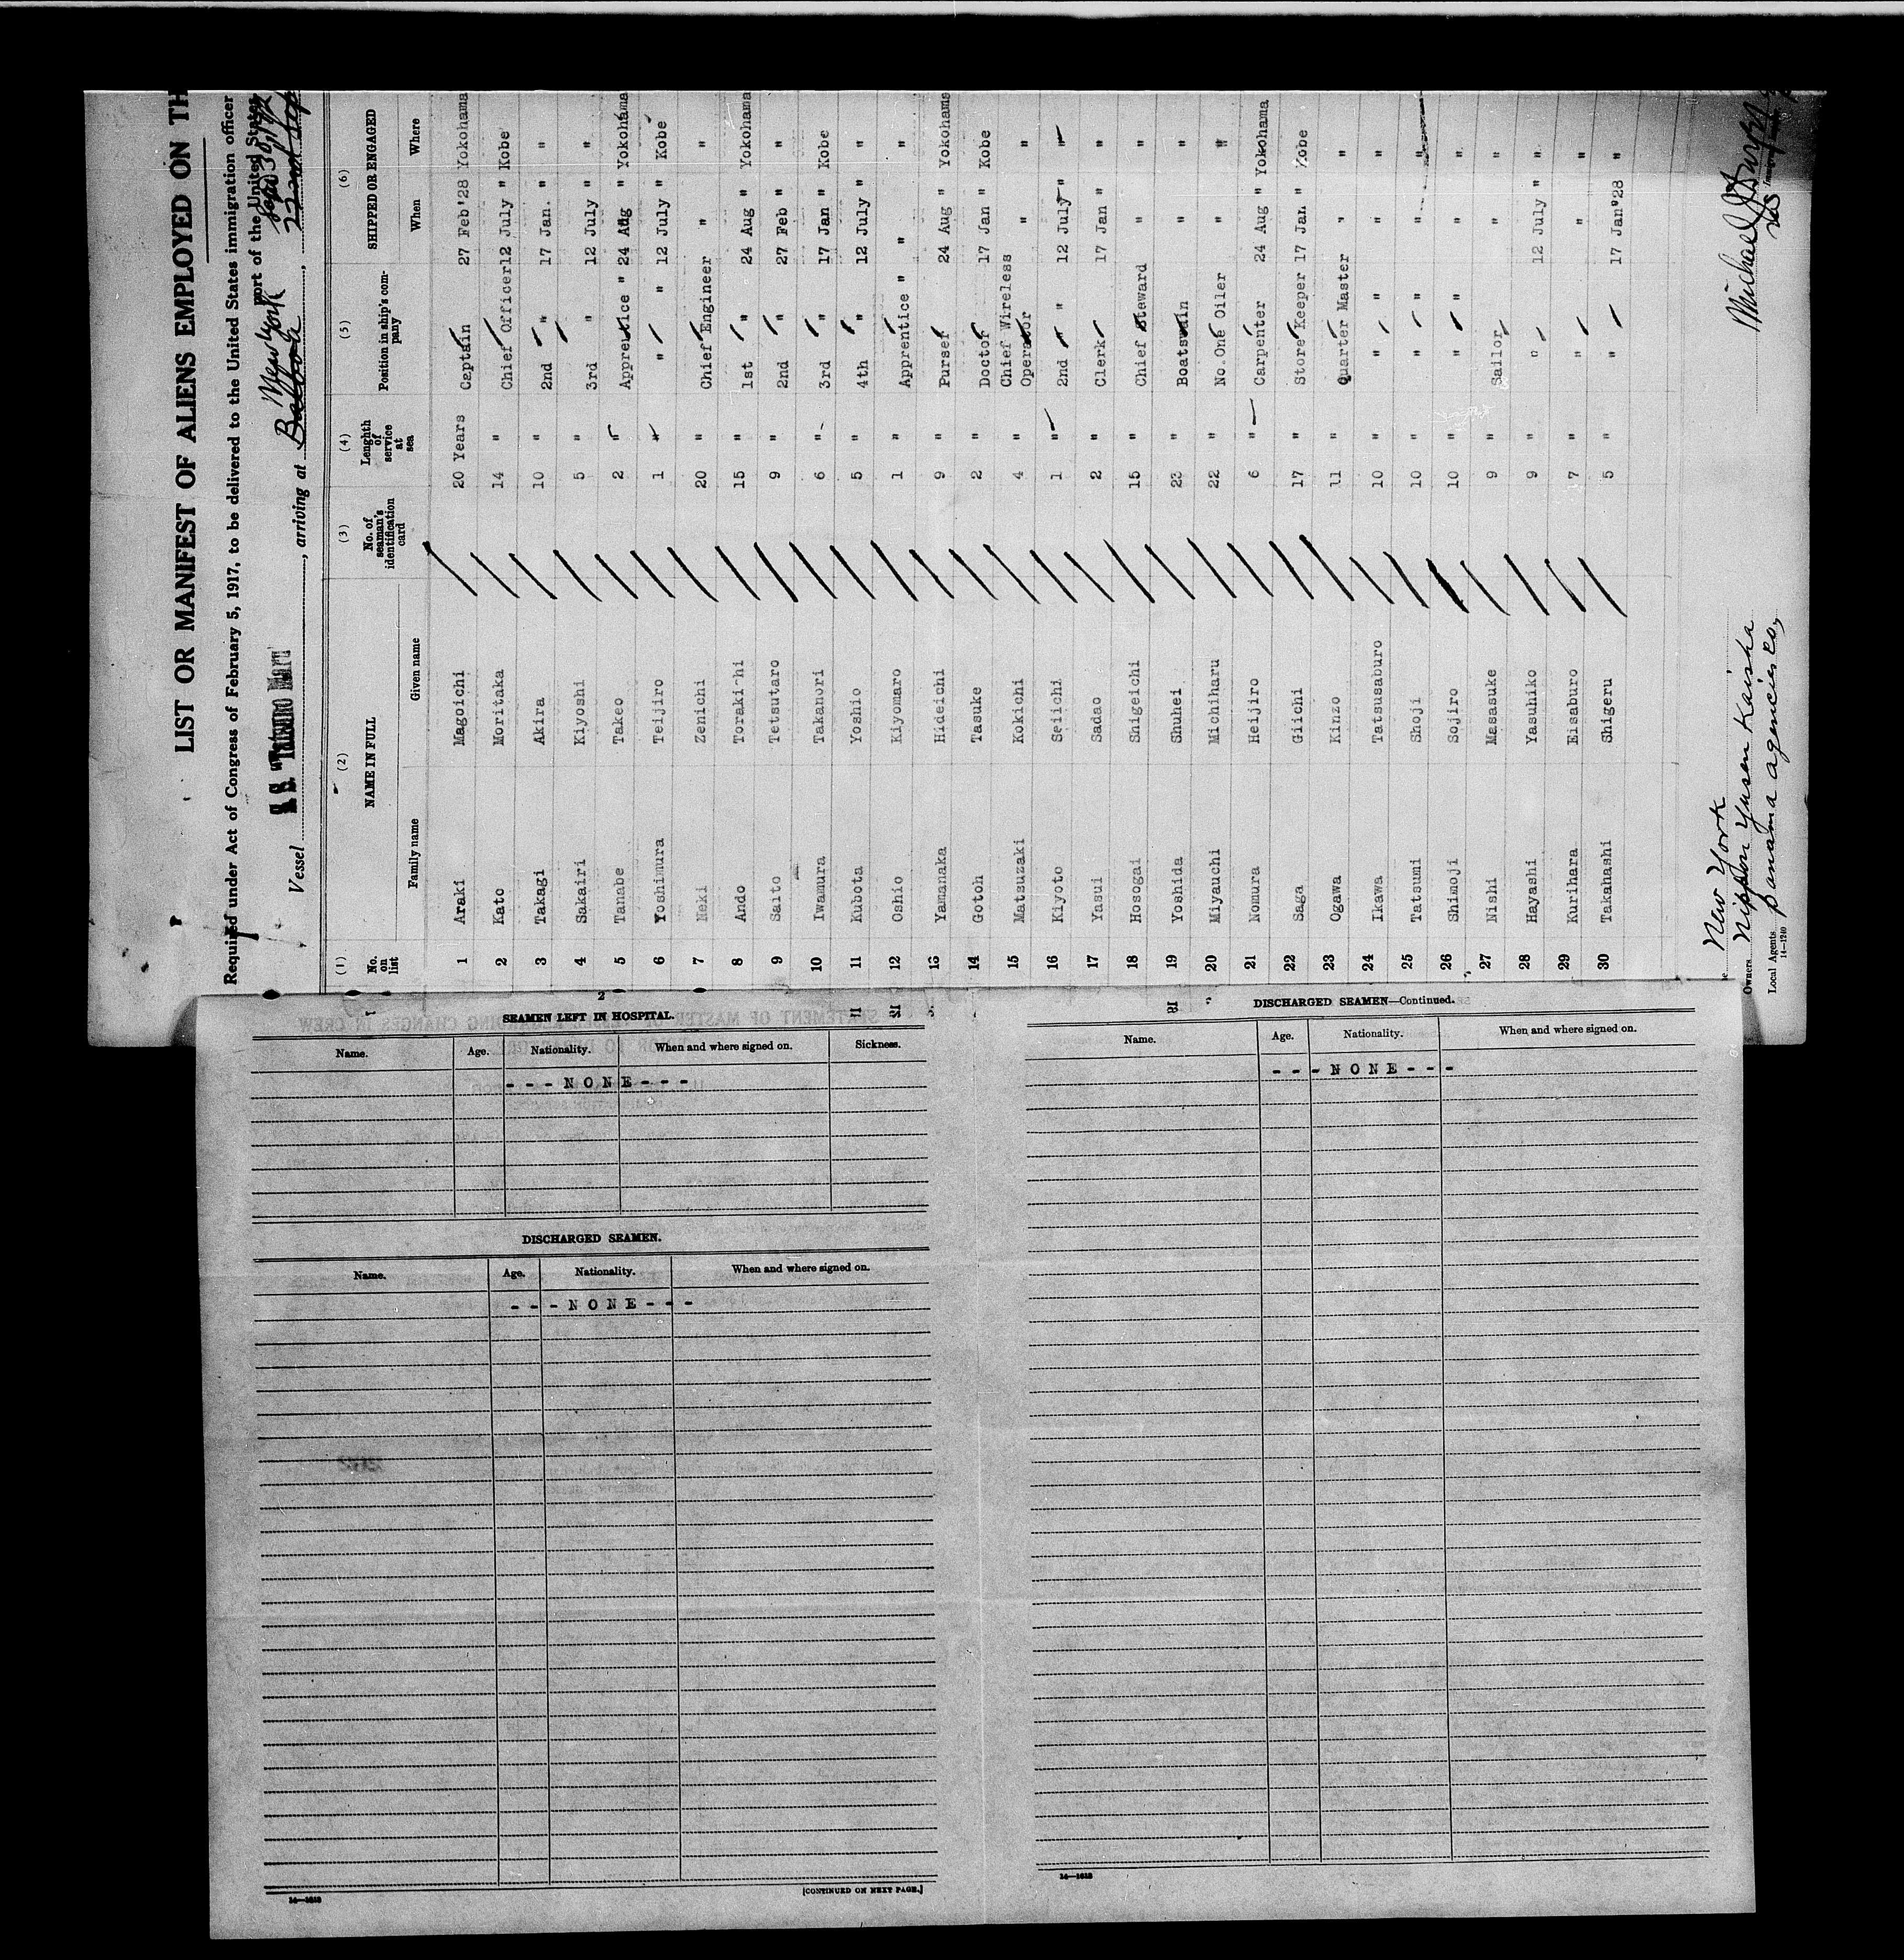 LIST OR MANIFEST OF ALIENS EMPLOYED ON TH
Required under Act of Congress of February 5, 1917, to be delivered to the United States immigration officer
port of the United States
New York
Vessel S. S. "Tatsuno Maru", arriving at Balboa, 22nd Sep
(1) (2) (3) (4) (5) (6)
No. on list NAME IN FULL No. of seaman's identification card Lenghth of service at sea Position in ship's company SHIPPED OR ENGAGED
Family name Given name When Where
1 Araki Magoichi 20 Years Captain 27 Feb '28 Yokohama
2 Kato Moritaka 14 " Chief Officer 12 July " Kobe
3 Takagi Akira 10 " 2nd " 17 Jan. " "
4 Sakairi Kiyoshi 5 " 3rd " 12 July " "
5 Tanabe Takeo 2 " Apprentice " 24 Aug " Yokohama
6 Yoshimura Teijiro 1 " " " 12 July " Kobe
7 Neki Zenichi 20 " Chief Engineer " "
8 Ando Torakichi 15 " 1st " 24 Aug " Yokohama
9 Saito Tetsutaro 9 " 2nd " 27 Feb " "
10 Iwamura Takanori 6 " 3rd " 17 Jan " Kobe
11 Kubota Yoshio 5 " 4th " 12 July " "
12 Oshio Kiyomaro 1 " Apprentice " " "
13 Yamanaka Hideichi 9 " Purser 24 Aug " Yokohama
14 Gotoh Tasuke 2 " Doctor 17 Jan " Kobe
15 Matsuzaki Kokichi 4 " Chief Wireless Operator " "
16 Kiyoto Seiichi 1 " 2nd " " 12 July " "
17 Yasui Sadao 2 " Clerk 17 Jan " "
18 Hosogai Shigeichi 15 " Chief Steward " "
19 Yoshida Shuhei 23 " Boatswain " "
20 Miyauchi Michiharu 22 " No. One Oiler " "
21 Nomura Heijiro 6 " Carpenter 24 Aug " Yokohama
22 Saga Giichi 17 " Store Keeper 17 Jan " Kobe
23 Ogawa Kinzo 11 " Quarter Master " "
24 Ikawa Tatsusaburo 10 " " " " "
25 Tatsumi Shoji 10 " " " " "
26 Shimoji Sojiro 10 " " " " "
27 Nishi Masasuke 9 " Sailor " "
28 Hayashi Yasuhiko 9 " " 12 July " "
29 Kurihara Eisaburo 7 " " " "
30 Takahashi Shigeru 5 " " 17 Jan '28 "
New York
Owners Nippon Yusen Kaisha
Local Agents Panama Agencies Co.,
14—1240
Michael
2
SEAMEN LEFT IN HOSPITAL.
Name. Age. Nationality. When and where signed on. Sickness.
- - - N O N E - - -
DISCHARGED SEAMEN.
Name. Age. Nationality. When and where signed on.
- - - N O N E - - -
14—1613
[CONTINUED ON NEXT PAGE.]
DISCHARGED SEAMEN—Continued.
Name. Age. Nationality. When and where signed on.
- - - N O N E - - -
14—1613